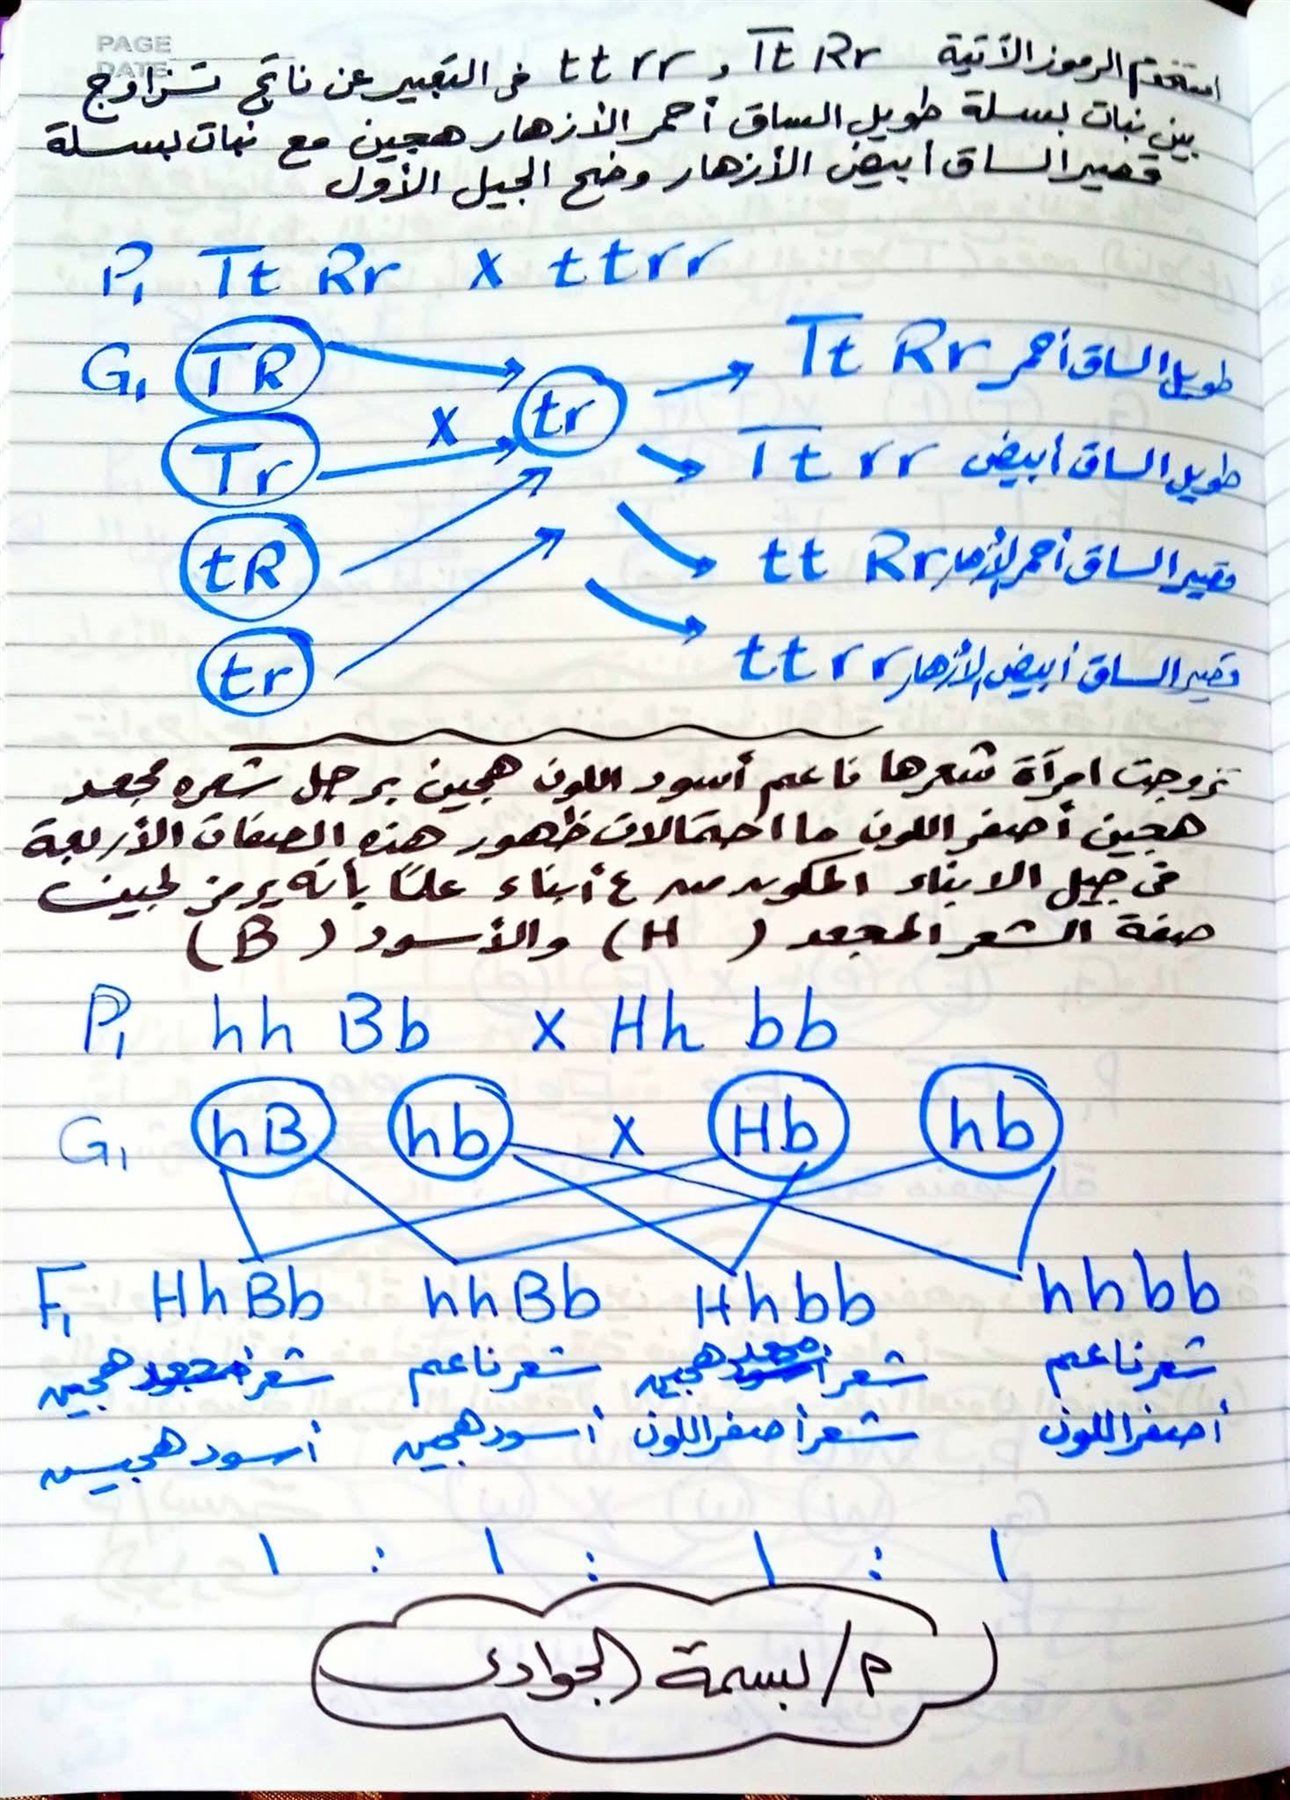 PAGE
DATE
استخدم الرموز الآتية Tt Rr و tt rr فى التعبير عن ناتج تزاوج
بين نبات بسلة طويل الساق أحمر الأزهار هجين مع نبات بسلة
قصير الساق أبيض الأزهار وضح الجيل الأول
P1 Tt Rr x ttrr
G1 TR tr Tt Rr طويل الساق أحمر
Tr x Tt rr طويل الساق أبيض
tR tt Rr قصير الساق أحمر الأزهار
tr ttrr قصير الساق أبيض الأزهار
تزوجت امرآة شعرها ناعم أسود اللون هجين برجل شعره مجعد
هجين أصفر اللون ما احتمالات ظهور هذه الصفات الأربعة
فى جيل الابناء المكون من ٤ أبناء علمًا بأنه يرمز لجين
صفة الشعر المجعد (H) والأسود (B)
P1 hh Bb x Hh bb
G1 hB hb x Hb hb
F1 HhBb hhBb Hhbb hhbb
شعر مجعد هجين شعر ناعم شعر مجعد هجين شعر ناعم
أسود هجين أسود هجين شعر أصفر اللون أصفر اللون
١ : ١ : ١ : ١
م/ بسمة الجوادى